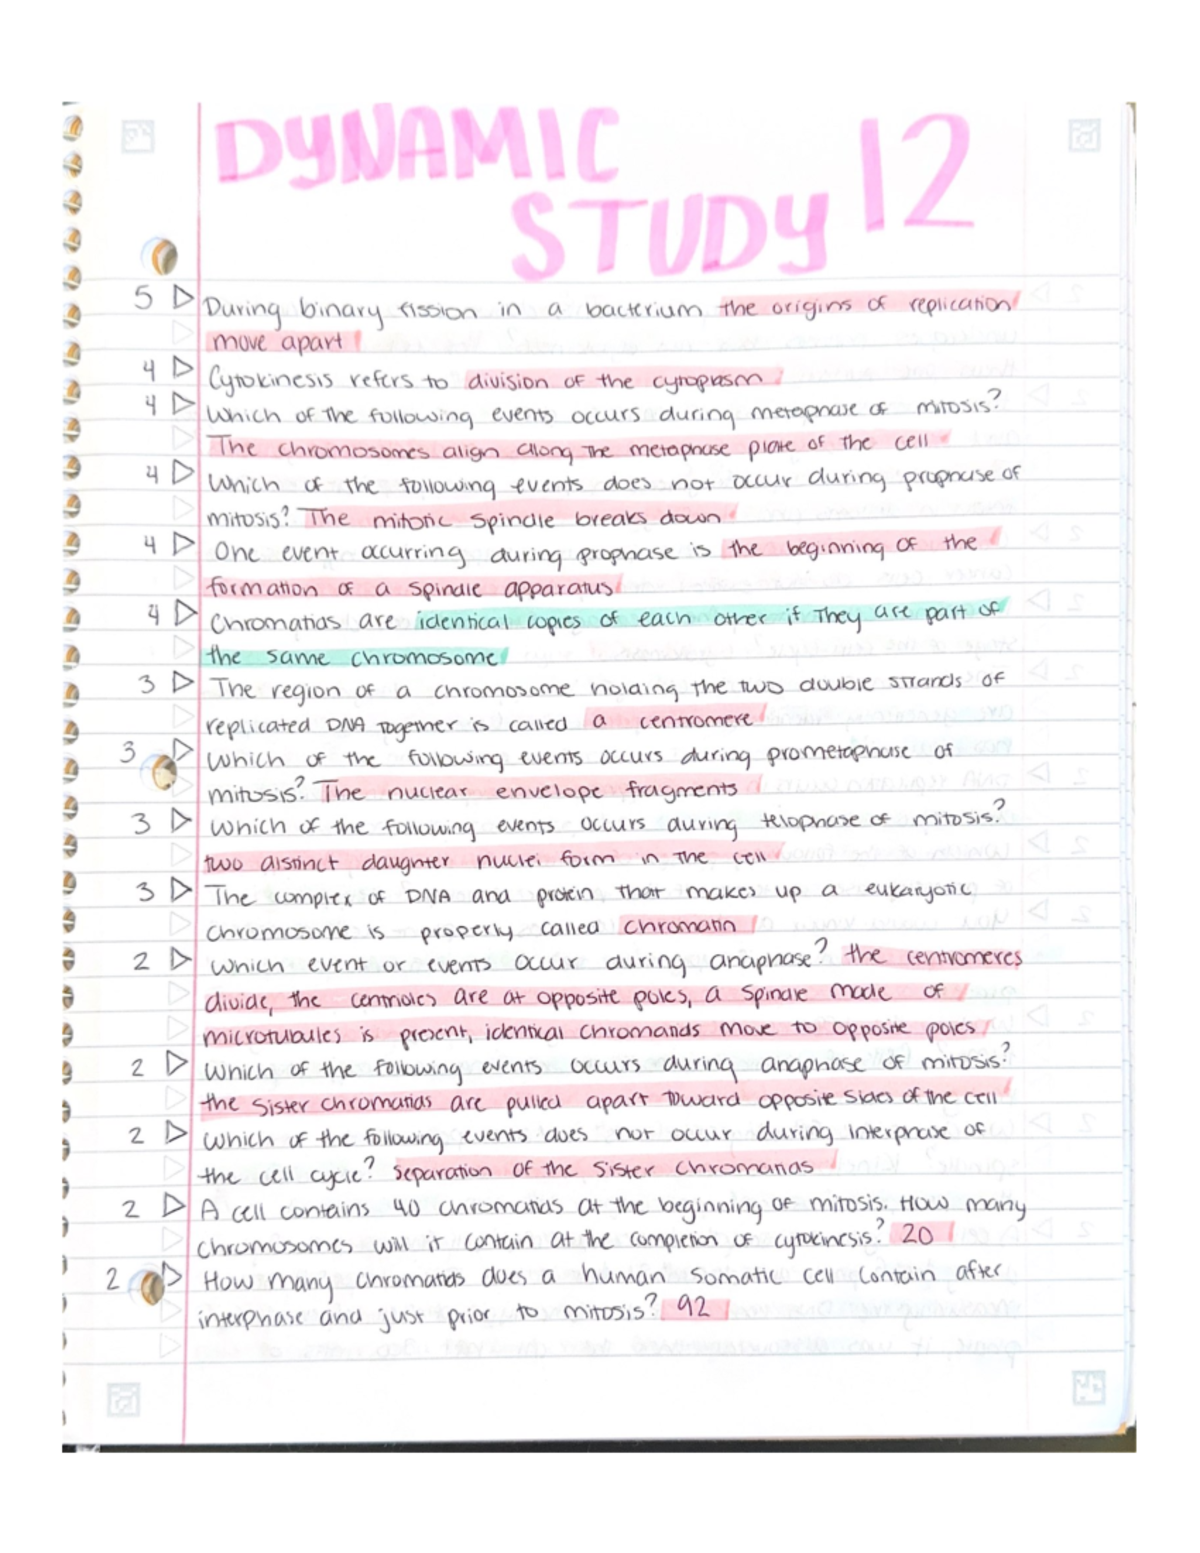 DYNAMIC 12
STUDY
5 During binary fission in a bacterium the origins of replication
move apart
4 Cytokinesis refers to division of the cytoplasm
4 Which of the following events occurs during metaphase of mitosis?
The chromosomes align along The metaphase plate of the cell
4 Which of the following events does not occur during prophase of
mitosis? The mitotic spindle breaks down
4 One event occurring during prophase is the beginning of the
formation of a spindle apparatus
4 Chromatids are identical copies of each other if They are part of
the same chromosome
3 The region of a chromosome holding the two double strands of
replicated DNA together is called a centromere
3 Which of the following events occurs during prometaphase of
mitosis? The nuclear envelope fragments
3 Which of the following events occurs during telophase of mitosis?
two distinct daughter nuclei form in the cell
3 The complex of DNA and protein that makes up a eukaryotic
chromosome is properly called chromatin
2 Which event or events occur during anaphase? the centromeres
divide, the centrioles are at opposite poles, a spindle made of
microtubules is present, identical chromatids move to opposite poles
2 Which of the following events occurs during anaphase of mitosis?
the sister chromatids are pulled apart toward opposite sides of the cell
2 Which of the following events does not occur during interphase of
the cell cycle? separation of the sister chromatids
2 A cell contains 40 chromatids at the beginning of mitosis. How many
chromosomes will it contain at the completion of cytokinesis? 20
2 How many chromatids does a human somatic cell contain after
interphase and just prior to mitosis? 92